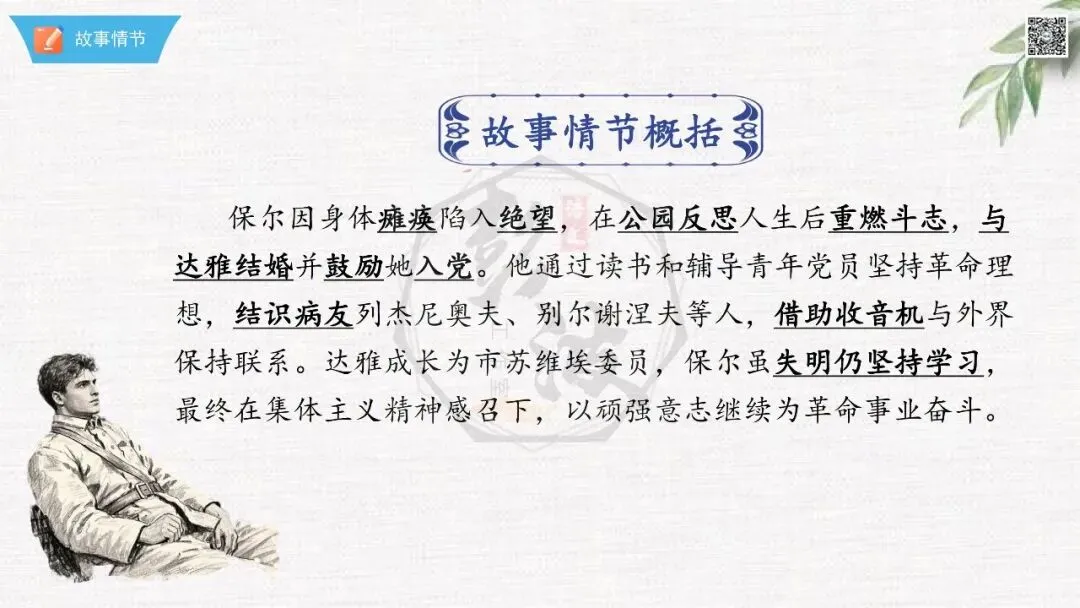 故事情节
故事情节概括
保尔因身体瘫痪陷入绝望，在公园反思人生后重燃斗志，与
达雅结婚并鼓励她入党。他通过读书和辅导青年党员坚持革命理
想，结识病友列杰尼奥夫、别尔谢涅夫等人，借助收音机与外界
保持联系。达雅成长为市苏维埃委员，保尔虽失明仍坚持学习，
最终在集体主义精神感召下，以顽强意志继续为革命事业奋斗。